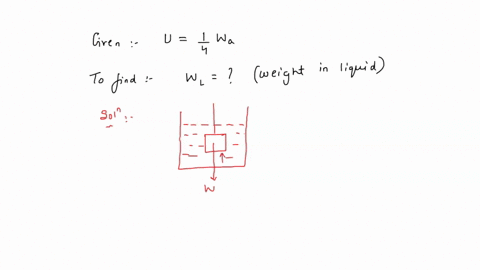 Given :- U = 1/4 Wa
To find :- WL = ? (weight in liquid)
Solⁿ :-
W